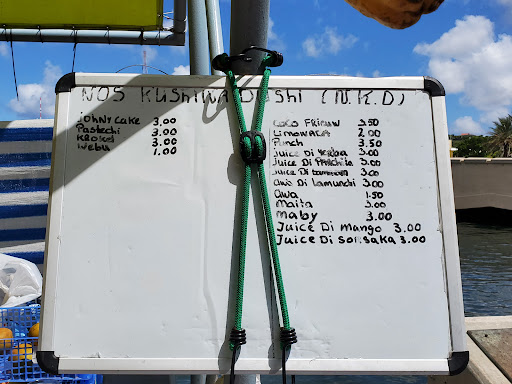 NOS KUSHINA DUSHI (N.K.D)
JOHNY CAKE 3,00
Pastechi 3,00
KROKET 3.00
WEBU 1.00
COCO FRIEUW 3.50
LIMONADA 2.00
PUNCH 3.50
JUICE DI YERBA 3.00
JUICE DI PARCHITA 3.00
JUICE DI 3.00
AWA DI LAMUNCHI 3.00
AWA 1.50
MALTA 3.00
MABY 3.00
JUICE DI MANGO 3.00
JUICE DI SORSAKA 3.00